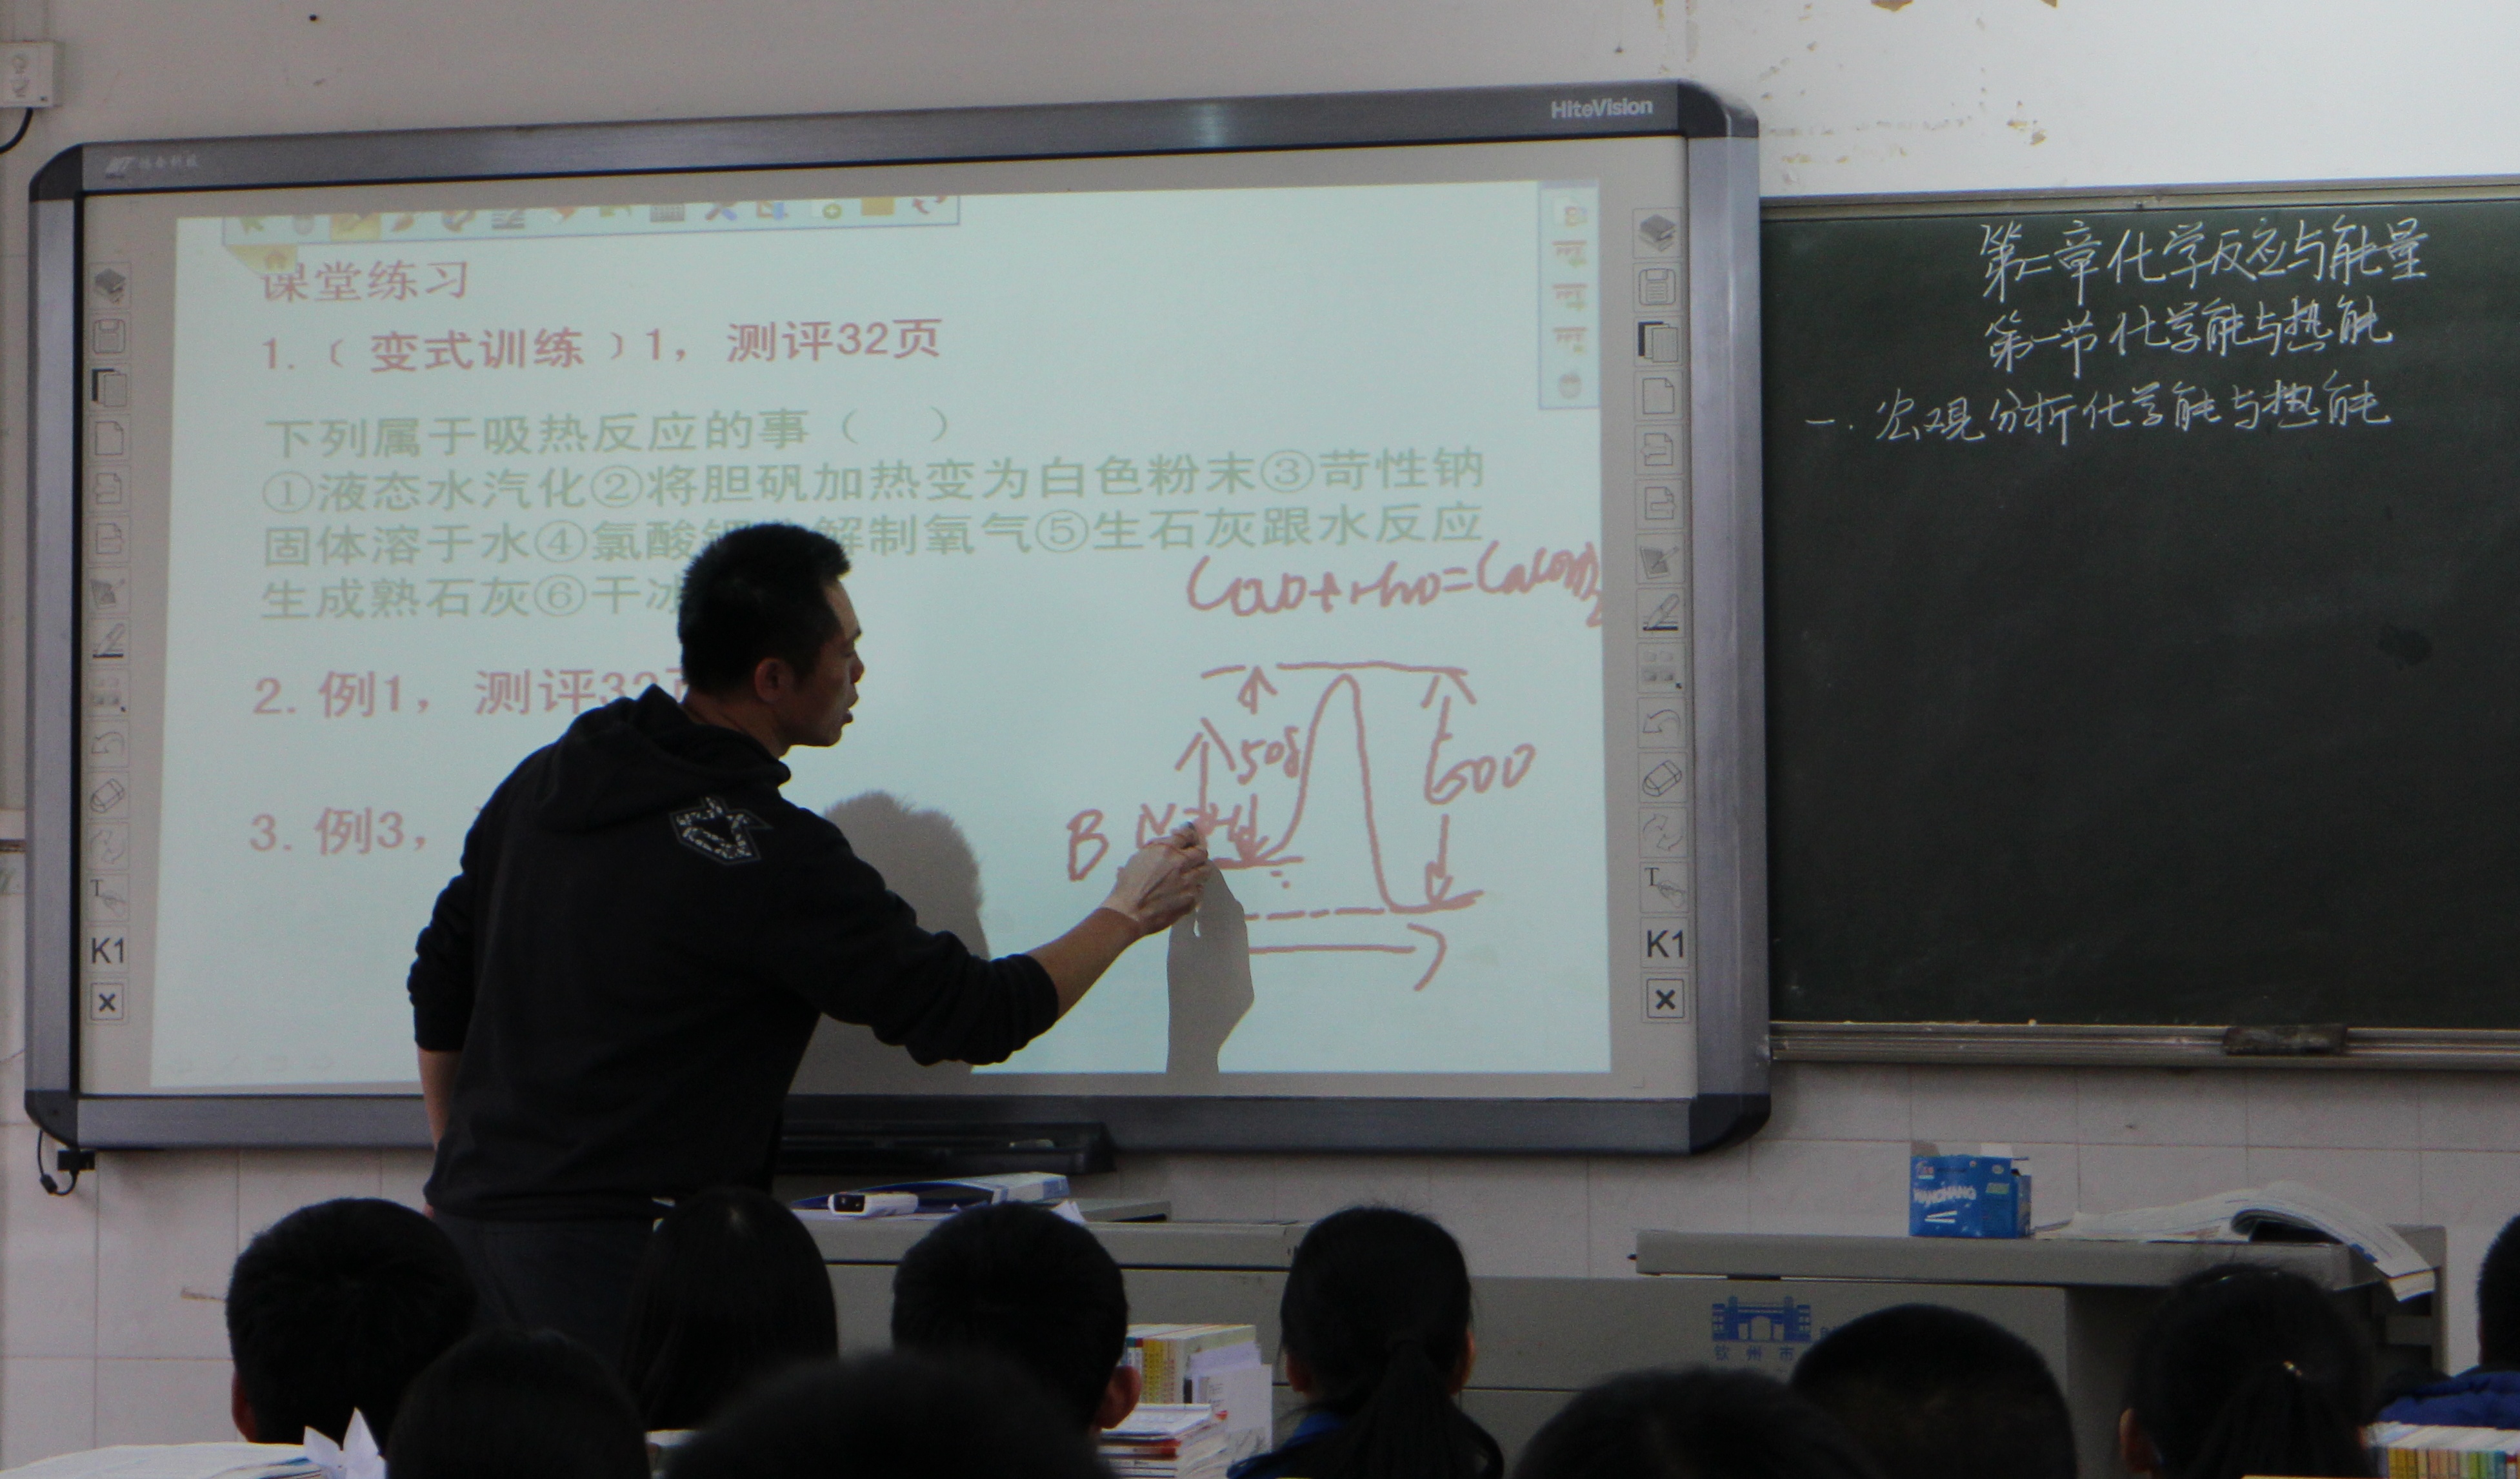 HiteVision
课堂练习
1.（变式训练）1，测评32页
下列属于吸热反应的事（ ）
①液态水汽化②将胆矾加热变为白色粉末③苛性钠
固体溶于水④氯酸 解制氧气⑤生石灰跟水反应
生成熟石灰⑥干冰
2. 例1，测评32页
3. 例3，
B
600
K1
K1
第二章化学反应与能量
第一节化学能与热能
一.宏观分析化学能与热能
WANGWANG
钦州市